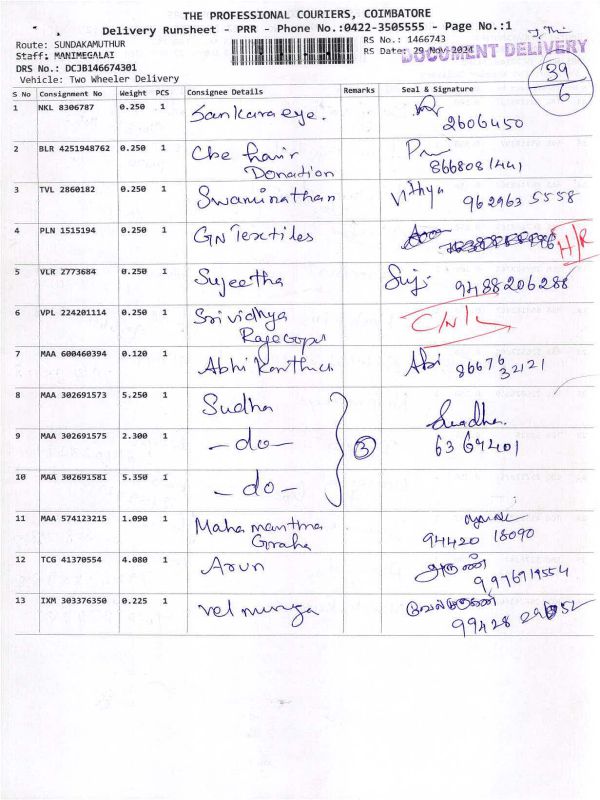 THE PROFESSIONAL COURIERS, COIMBATORE
Delivery Runsheet - PRR - Phone No.:0422-3505555 - Page No.:1
Route: SUNDAKAMUTHUR
Staff: MANIMEGALAI
DRS No.: DCJB146674301
Vehicle: Two Wheeler Delivery
RS No.: 1466743
RS Date: 29-Nov-2024
DOCUMENT DELIVERY
39
6
S No Consignment No Weight PCS Consignee Details Remarks Seal & Signature
1 NKL 8306787 0.250 1 Sankara eye.
2606450
2 BLR 4251948762 0.250 1 Cbe hair
Donation
8668081441
3 TVL 2860182 0.250 1 Swaminathan Vithya 962963 5558
4 PLN 1515194 0.250 1 GN Textiles H/R
5 VLR 2773684 0.250 1 Sujeetha Suji 9488206288
6 VPL 224201114 0.250 1 Sri vidhya
Rajegopal
7 MAA 600460394 0.120 1 Abhi Kanthuci Abi 86676
32121
8 MAA 302691573 5.250 1 Sudha Suadha.
9 MAA 302691575 2.300 1 -do- 3 63 67401
10 MAA 302691581 5.350 1 -do-
11 MAA 574123215 1.090 1 Maha manthra
Graha 94420 18090
12 TCG 41370554 4.080 1 Arun அருண்
9976719554
13 IXM 303376350 0.225 1 vel muruga வேல்முருகன்
99428